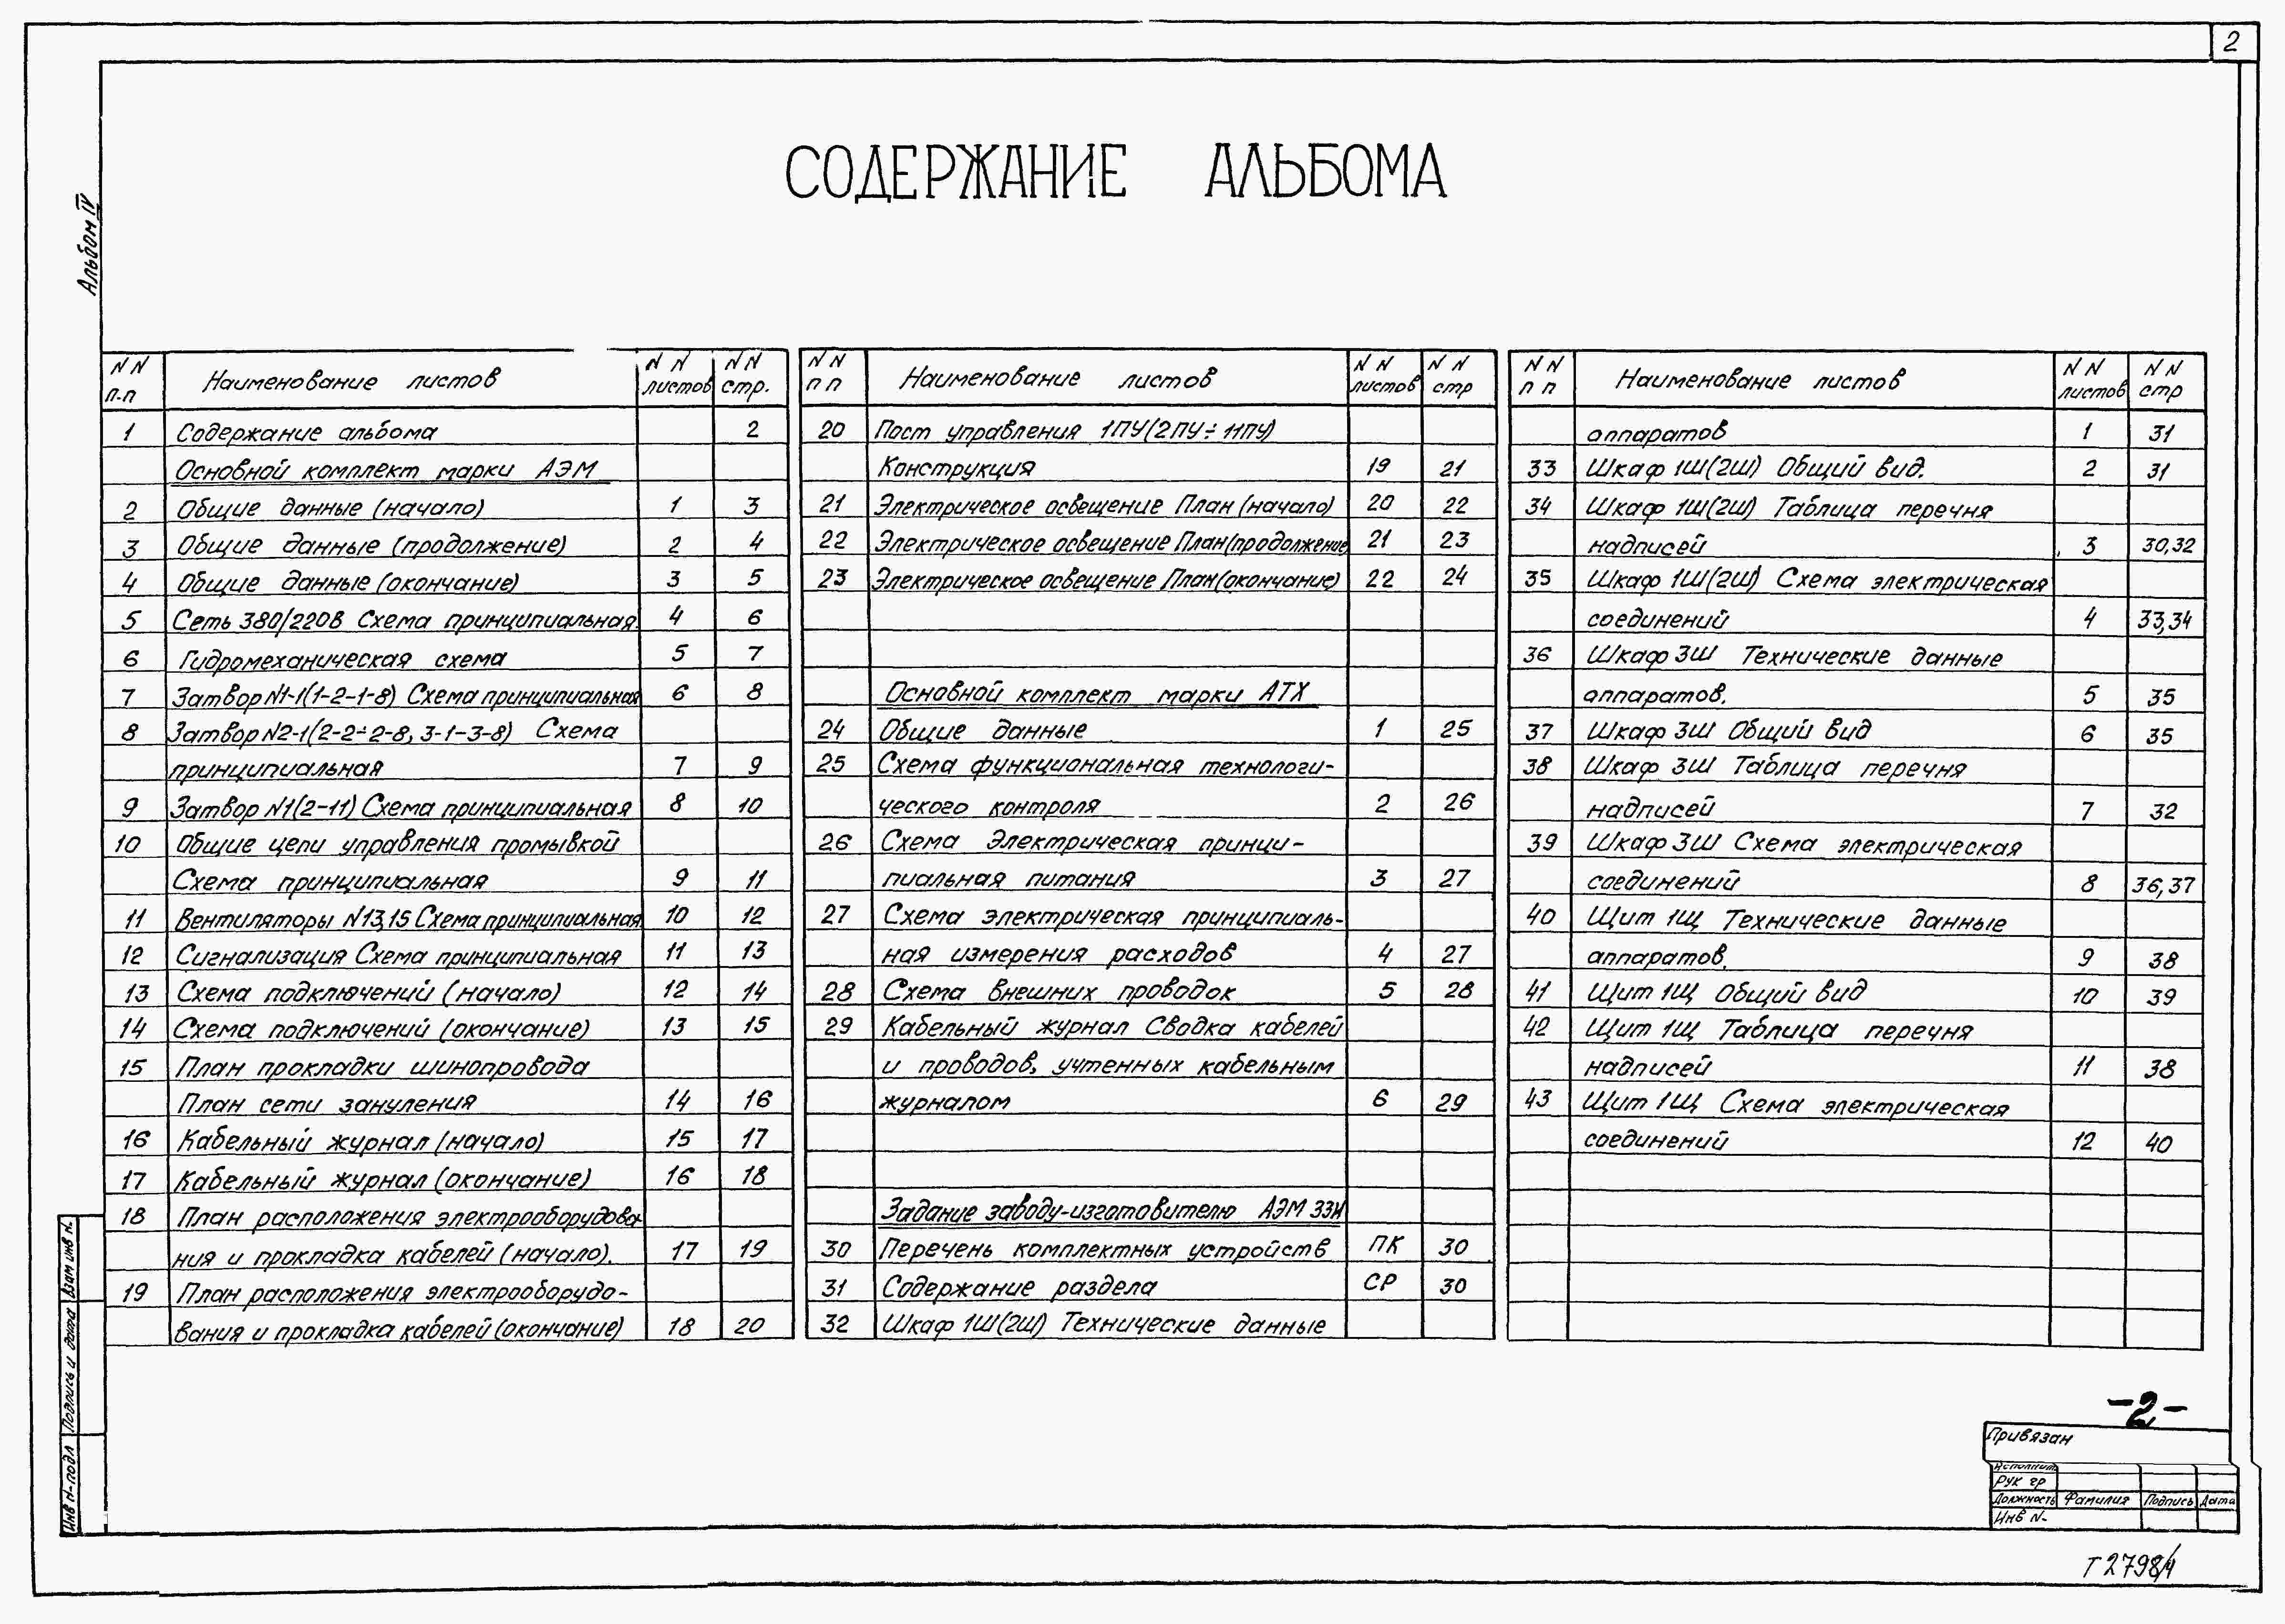 2
СОДЕРЖАНИЕ АЛЬБОМА
Альбом IV
N N п-п Наименование листов N N листов N N стр.
1 Содержание альбома 2
Основной комплект марки АЭМ
2 Общие данные (начало) 1 3
3 Общие данные (продолжение) 2 4
4 Общие данные (окончание) 3 5
5 Сеть 380/220В Схема принципиальная. 4 6
6 Гидромеханическая схема 5 7
7 Затвор N1-1(1-2-1-8) Схема принципиальная 6 8
8 Затвор N2-1(2-2÷2-8, 3-1-3-8) Схема
принципиальная 7 9
9 Затвор N1(2-11) Схема принципиальная 8 10
10 Общие цепи управления промывкой
Схема принципиальная 9 11
11 Вентиляторы N13,15 Схема принципиальная. 10 12
12 Сигнализация Схема принципиальная 11 13
13 Схема подключений (начало) 12 14
14 Схема подключений (окончание) 13 15
15 План прокладки шинопровода
План сети зануления 14 16
16 Кабельный журнал (начало) 15 17
17 Кабельный журнал (окончание) 16 18
18 План расположения электрооборудова-
ния и прокладка кабелей (начало). 17 19
19 План расположения электрооборудо-
вания и прокладка кабелей (окончание) 18 20
N N п п Наименование листов N N листов N N стр
20 Пост управления 1ПУ(2ПУ÷11ПУ)
Конструкция 19 21
21 Электрическое освещение План (начало) 20 22
22 Электрическое освещение План(продолжение 21 23
23 Электрическое освещение План(окончание) 22 24
Основной комплект марки АТХ
24 Общие данные 1 25
25 Схема функциональная технологи-
ческого контроля 2 26
26 Схема Электрическая принци-
пиальная питания 3 27
27 Схема электрическая принципиаль-
ная измерения расходов 4 27
28 Схема внешних проводок 5 28
29 Кабельный журнал Сводка кабелей
и проводов, учтенных кабельным
журналом 6 29
Задание заводу-изготовителю АЭМ ЗЗИ
30 Перечень комплектных устройств ПК 30
31 Содержание раздела СР 30
32 Шкаф 1Ш(2Ш) Технические данные
N N п п Наименование листов N N листов N N стр
аппаратов 1 31
33 Шкаф 1Ш(2Ш) Общий вид. 2 31
34 Шкаф 1Ш(2Ш) Таблица перечня
надписей 3 30,32
35 Шкаф 1Ш(2Ш) Схема электрическая
соединений 4 33,34
36 Шкаф 3Ш Технические данные
аппаратов. 5 35
37 Шкаф 3Ш Общий вид 6 35
38 Шкаф 3Ш Таблица перечня
надписей 7 32
39 Шкаф 3Ш Схема электрическая
соединений 8 36,37
40 Щит 1Щ Технические данные
аппаратов. 9 38
41 Щит 1Щ Общий вид 10 39
42 Щит 1Щ Таблица перечня
надписей 11 38
43 Щит 1Щ Схема электрическая
соединений 12 40
Инв N-подл Подпись и дата Взам инв N.
-2-
Привязан
Исполнит.
Рук гр
Должность Фамилия Подпись Дата
Инв N-
Т 2798/4